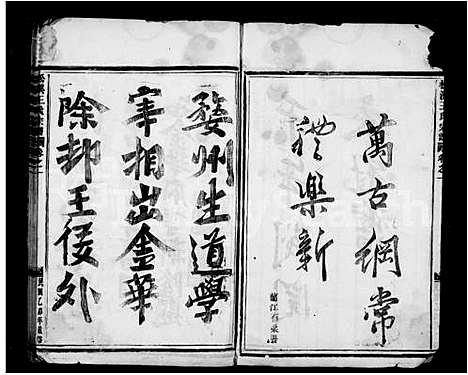 萬古綱常
禮樂新
婺州生道學
宰相出金華
除却王侯外